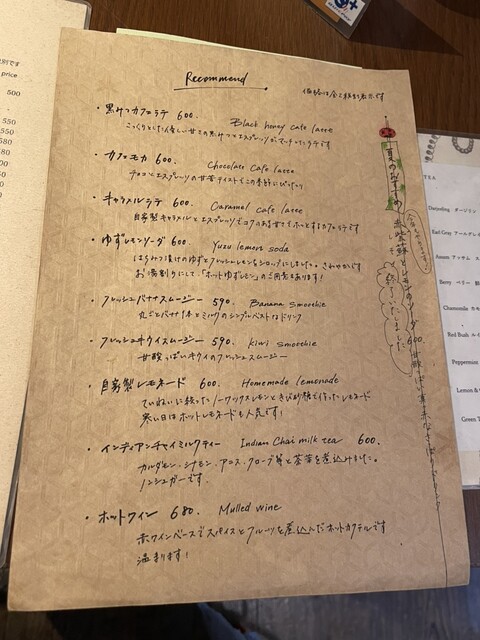 Recommend
価格は全て税別表示です
・黒みつカフェラテ 600. Black honey cafe latte
こっくりとした優しい甘さの黒みつとエスプレッソがマッチしたラテです
・カフェモカ 600. Chocolate cafe latte
チョコとエスプレッソの甘苦テイストでこの季節にぴったり
・キャラメルラテ 600. Caramel cafe latte
自家製キャラメルとエスプレッソでコクのある甘さでホッとするカフェラテです
・ゆずレモンソーダ 600 Yuzu lemon soda
はちみつ漬けのゆずとフレッシュレモンをシロップにしました。さわやかです
お湯割りにして「ホットゆずレモン」のご用意もあります!
・フレッシュバナナスムージー 590. Banana smoothie
丸ごとバナナ1本とミルクのシンプルベストなドリンク
・フレッシュキウイスムージー 590. kiwi smoothie
甘酸っぱいキウイのフレッシュスムージー
・自家製レモネード 600. Homemade lemonade
ていねいに絞ったノーワックスレモンときび砂糖で作ったレモネード
寒い日はホットレモネードも人気です!
・インディアンチャイミルクティー Indian Chai milk tea 600.
カルダモン、シナモン、アニス、クローブ等と茶葉を煮込みました。
ノンシュガーです。
・ホットワイン 680. Mulled wine
赤ワインベースでスパイスとフルーツを煮込んだホットカクテルです
温まります!
夏のおすすめ
赤紫蘇とレモンのソーダ 600.
終了いたしました
price
500
550
550
580
TEA
Darjeeling ダージリン
Earl Gray アールグレイ
Assam アッサム
Berry ベリー
Chamomile カモ
Red Bush ルイ
Peppermint
Lemon &
Green T